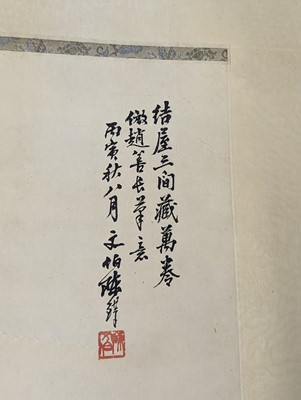 结屋三间藏萬卷
倣趙善长筆意
丙寅秋八月文伯